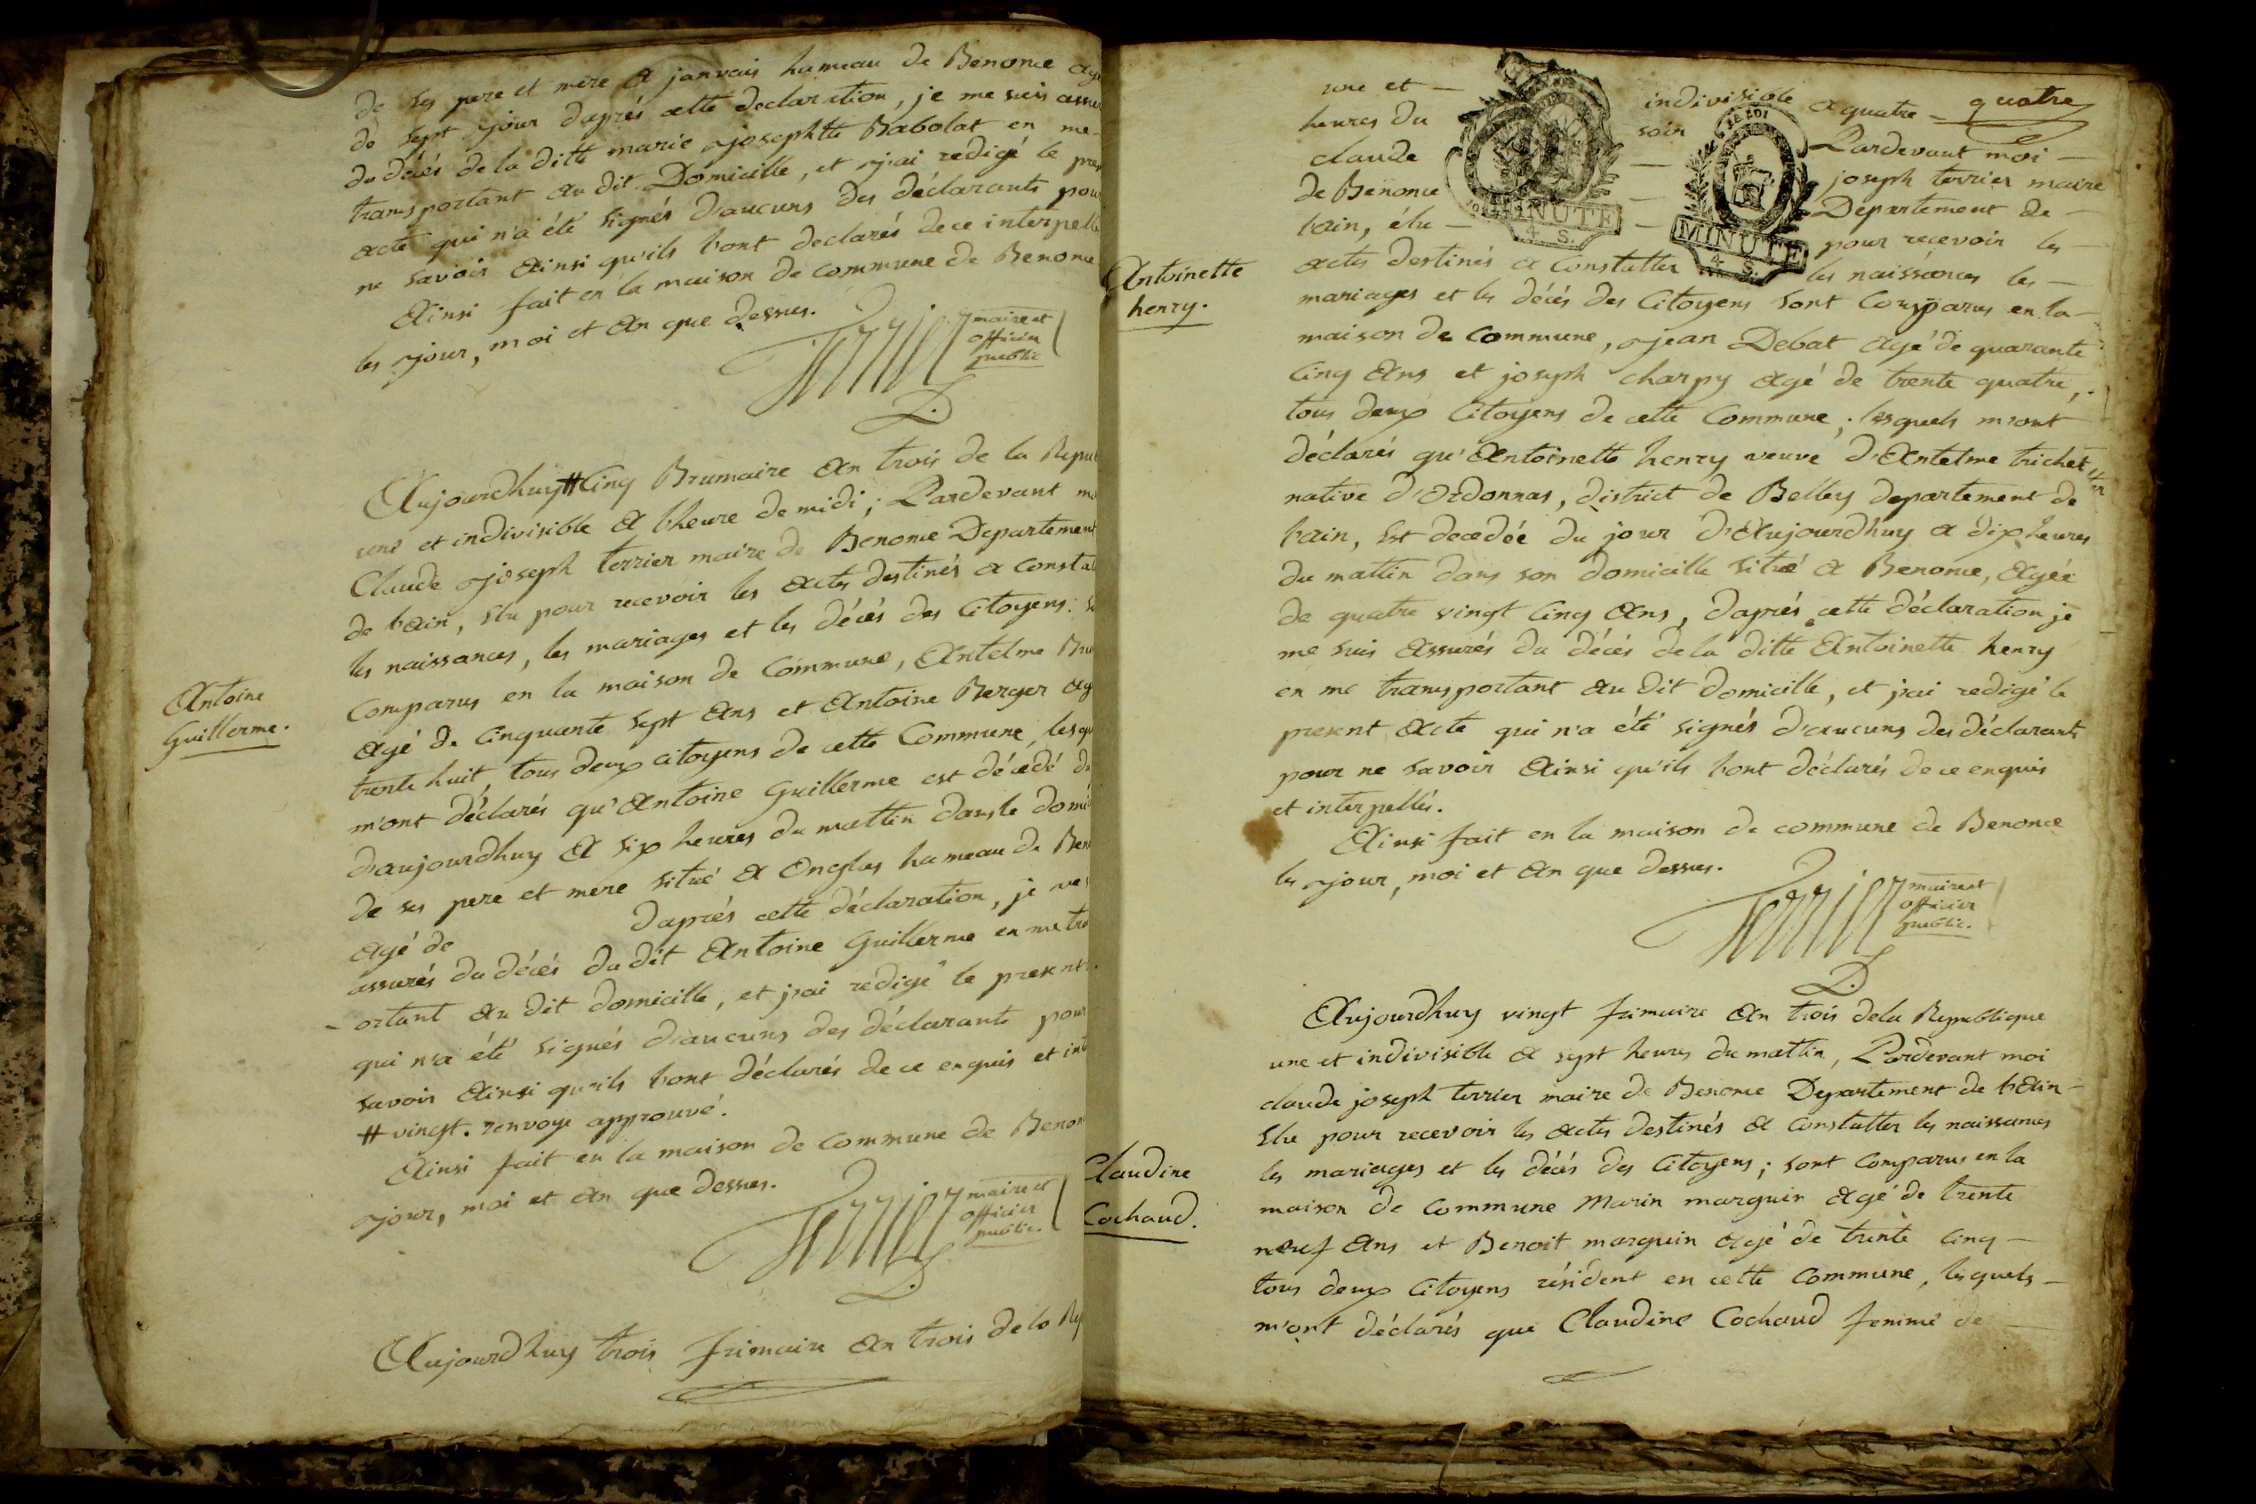 de ses pere et mere a janvais hameau de Benonce agé
de sept jour daprés cette declaration, je me suis assu
du décés de la ditte marie josephtte Babolat en me
transportant au dit Domicille, et j'ai redigé le pres
acte qui n'a été signés d'aucuns des déclarants pour
ne savoir Ainsi qu'ils l'ont declarés de ce interpell
Ainsi fait en la maison de commune de Benonce
les jour, moi et an que dessus.
Terrier maire et
officier
public
Antoine
Guillerme.
Aujourdhuy # Cinq Brumaire an trois de la Repub
une et indivisible a l'heure de midi ; Pardevant m
Claude joseph terrier maire de Benonce Departement
de l'Ain, élu pour recevoir les actes destinés a constat
les naissances, les mariages et les décés des Citoyens : s
comparus en la maison de Commune, Antelme Bru
agé de cinquante sept ans et Antoine Berger ag
trente huit, tous deux citoyens de cette Commune, lesqu
m'ont déclarés qu'Antoine Guillerme est décédé du
d'aujourdhuy a six heures du mattin dans le domi
de ses pere et mere situé a Onglas hameau de Ben
agé de daprés cette déclaration, je me
assurés du décés du dit Antoine Guillerme en me tra
- ortant au dit domicille, et j'ai redigé le present
qui n'a été signés d'aucuns des déclarants pour
savoir Ainsi qu'ils l'ont déclarés de ce enquis et int
# vingt. renvoye approuvé.
Ainsi fait en la maison de commune de Benon
jour, moi et an que dessus.
Terrier maire et
officier
public.
Aujourdhuy trois frimaire an trois de la Re
une et - indivisible a quatre - quatre
heures du soir Pardevant moi -
claude - joseph terrier maire
de Benonce - Departement de -
l'ain, élu - - pour recevoir les -
LA LOI
MINUTE
4 S.
MINUTE
4 S.
Antoinette
henry.
actes destinés a Constatter les naissances les -
mariages et les décés des Citoyens sont Comparus en la -
maison de commune, jean Debat agé de quarante
Cinq Ans et joseph charpy agé de trente quatre,
tous deux Citoyens de cette Commune ; lesquels m'ont
déclarés qu'Antoinette henry veuve d'Antelme trichet
native d'Ordonnas, district de Belley departement de
l'ain, est decedée du jour d'Aujourdhuy a dix heures
du mattin dans son domicille situé a Benonce, agée
de quatre vingt Cinq ans, daprés cette déclaration je
me suis assurés du décés de la ditte Antoinette henry
en me transportant au dit domicille, et j'ai redigé le
present acte qui n'a été signés d'aucuns des déclarants
pour ne savoir Ainsi qu'ils l'ont déclarés de ce enquis
et interpellés.
Ainsi fait en la maison de commune de Benonce
les jour, moi et an que dessus.
Terrier maire et
officier
public.
Claudine
Cochaud.
Aujourdhuy vingt frimaire an trois de la Republique
une et indivisible a sept heures du mattin, Pardevant moi
claude joseph terrier maire de Benonce Departement de l'Ain -
élu pour recevoir les actes destinés a Constatter les naissances
les mariages et les décés des Citoyens ; sont Comparus en la
maison de commune Marin marguin agé de trente
neuf ans et Benoit marguin agé de trente Cinq -
tous deux Citoyens résident en cette Commune, lesquels -
m'ont déclarés que Claudine Cochaud femme de -